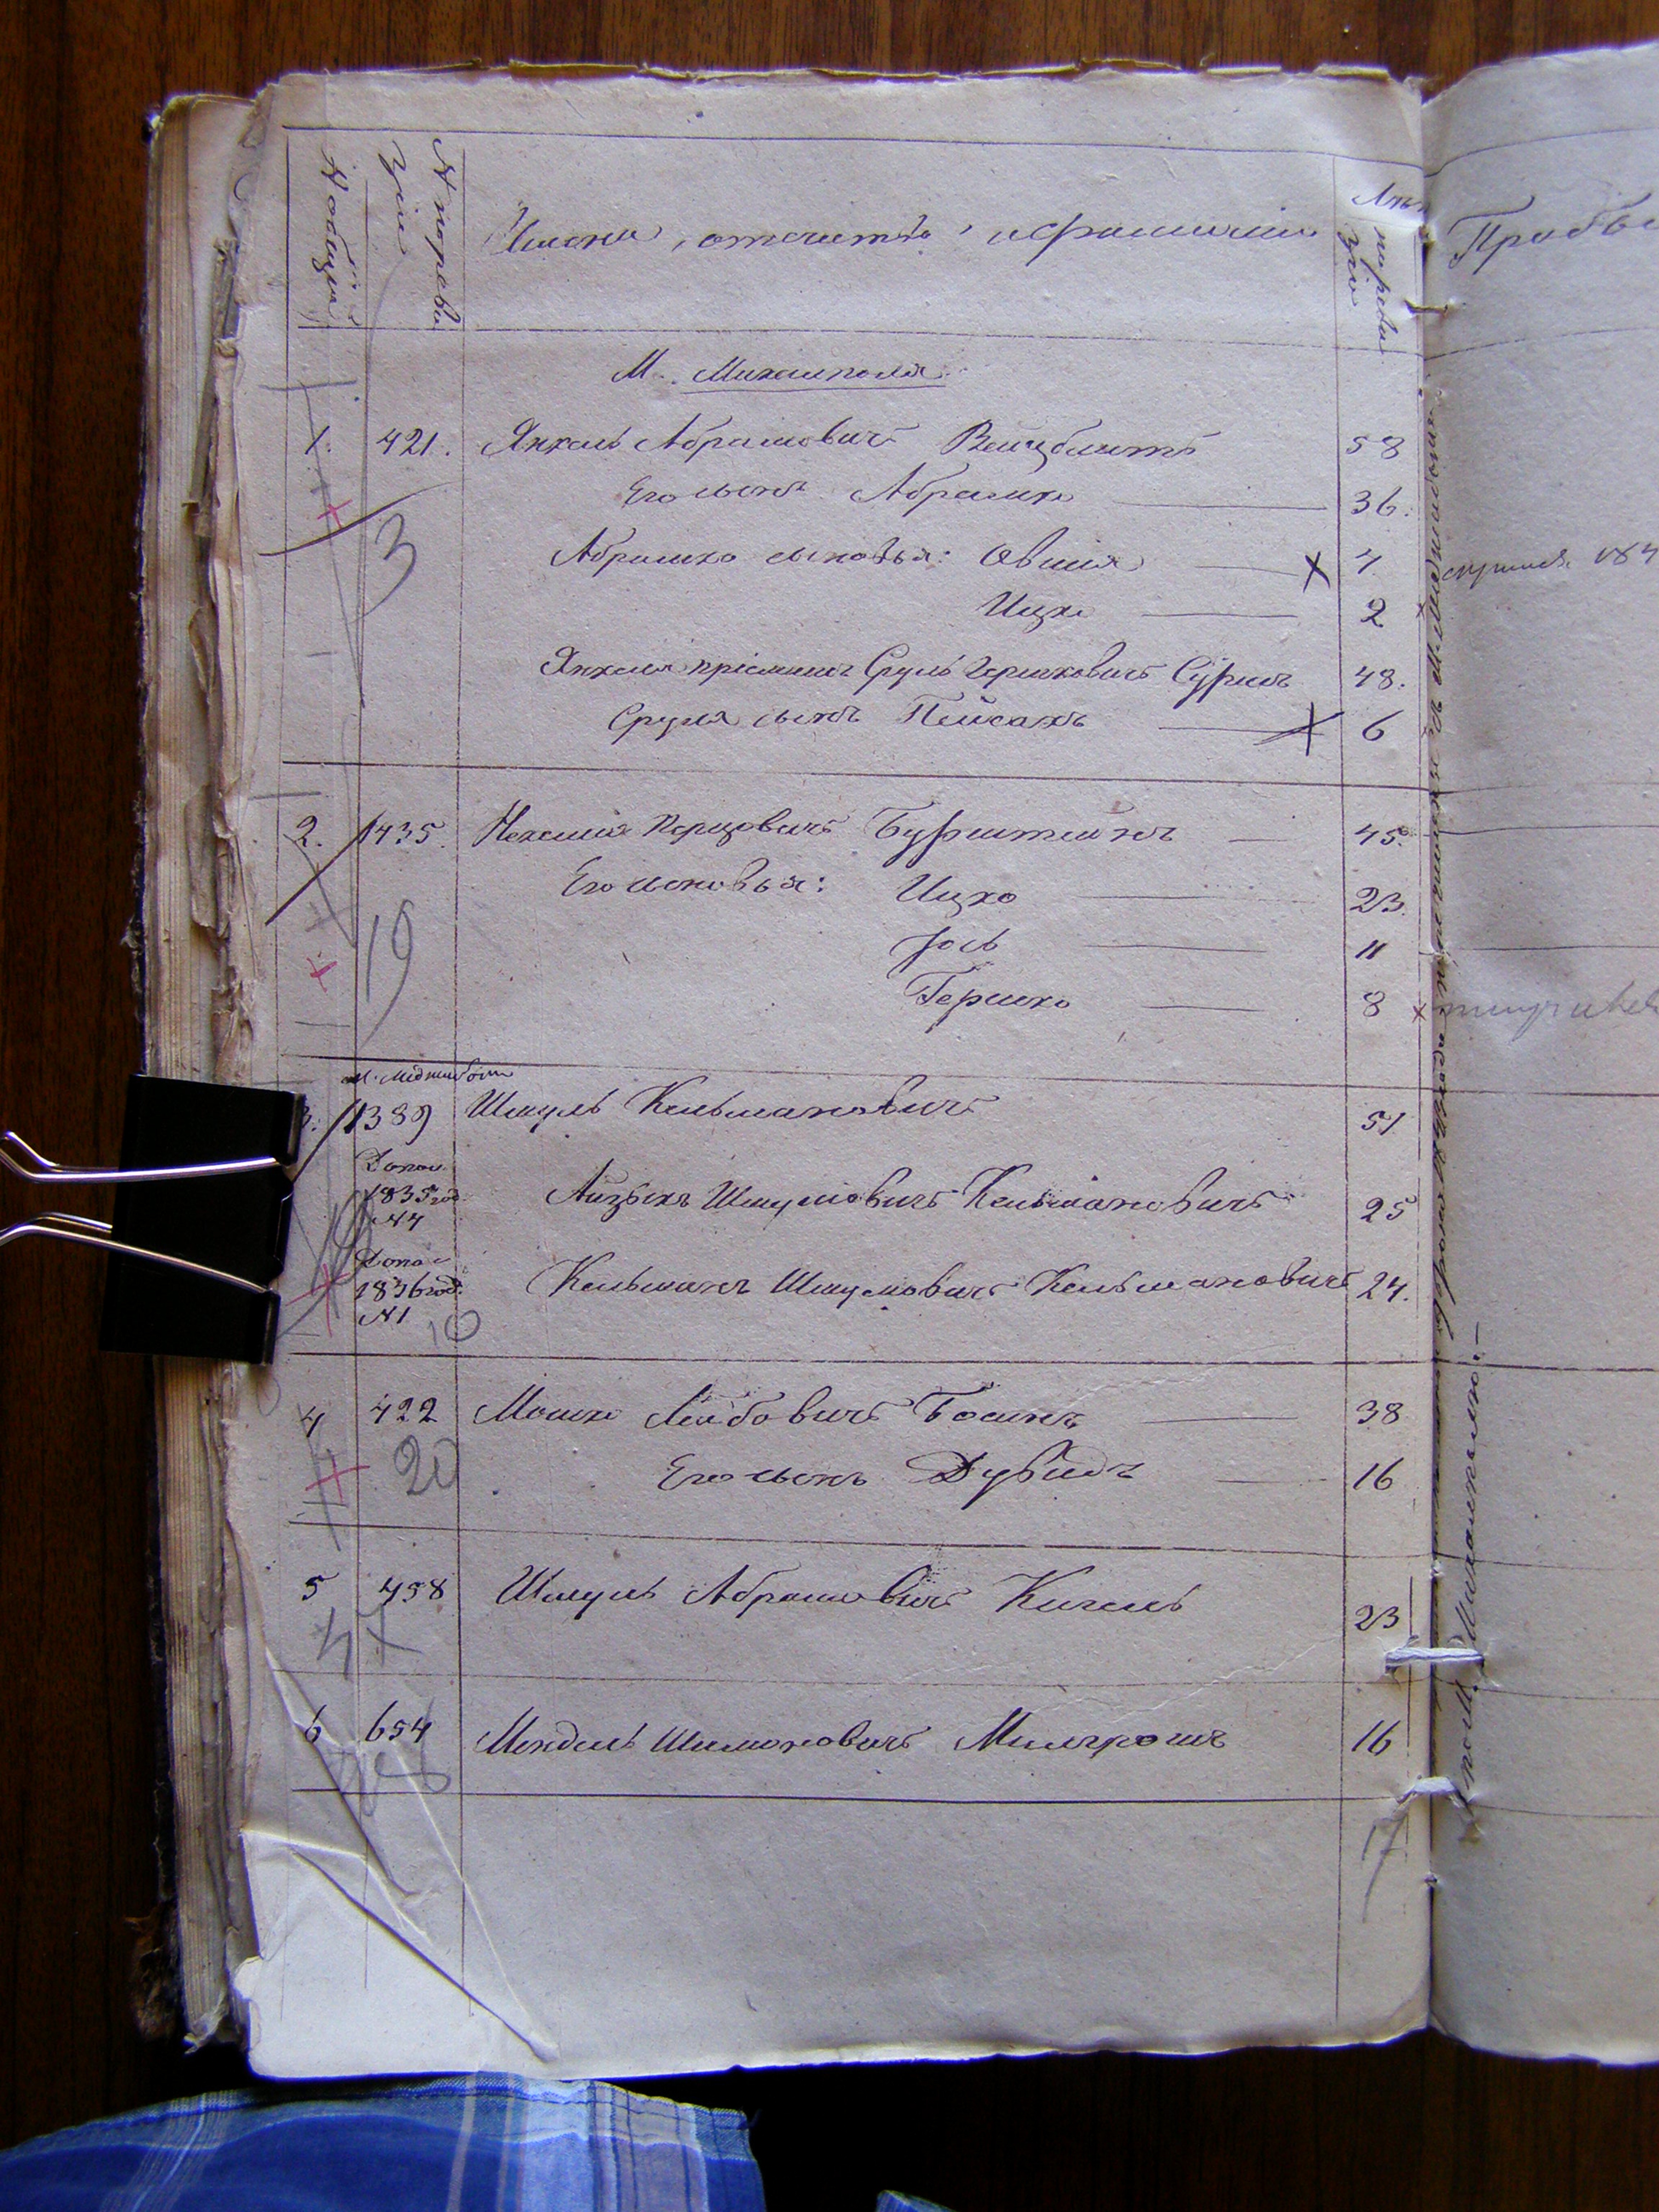 № общий
№ по ревизіи
Имена, отчества и фамиліи
Лета по ревизіи
Пробы
М. Михалполя
1. 421. Янкель Абрамовичъ Вейцблитъ 58
Его сынъ Абрамко 36.
3 Абрамко сыновья: Овшія 4
Ицко 2
Янкеля пріемышъ Сруль Гершковичъ Суримъ 48.
Сруля сынъ Пейсахъ 6
2. 435. Нехемія Перцовичъ Бурштейнъ 45.
Его сыновья: Ицко 23.
19 Іось 11
Гершко 8
М. Меджибожъ
3. 1389 Шмуль Кельмановичъ 51
Допол. 1835 год. №4 Айзыкъ Шмулёвичъ Кельмановичъ 25
Допол. 1836 год. №1 Кельманъ Шмулёвичъ Кельмановичъ 24.
10
4 422 Мошко Лейбовичъ Босинъ 38
20 Его сынъ Дувидъ 16
5 458 Шмуль Абрамовичъ Кигель 23
6 654 Мендель Шимоновичъ Милгромъ 16
17